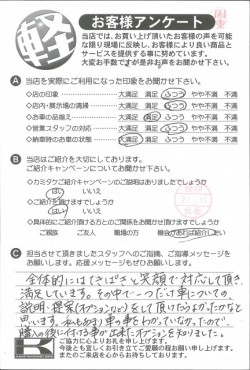 軽
お客様アンケート
当店では、お買い上げ頂いたお客様の声を可能
な限り現場に反映し、お客様により良い商品と
サービスを提供する事に努めています。
大変お手数ですが是非お声をお聞かせ下さい。
A 当店を実際にご利用になった印象をお聞かせ下さい。
◇店の印象 大満足 満足 ふつう やや不満 不満
◇店内・展示場の清掃 大満足 満足 ふつう やや不満 不満
◇お車の品揃え 大満足 満足 ふつう やや不満 不満
◇営業スタッフの対応 大満足 満足 ふつう やや不満 不満
◇納車時のお車の状態 大満足 満足 ふつう やや不満 不満
B 当店はご紹介を大切にしております。
ご紹介キャンペーンについてお聞かせ下さい。
◇カミタケご紹介キャンペーンのご説明はありましたでしょうか
はい いいえ
◇ご紹介を頂けますでしょうか
はい いいえ
◇具体的にご紹介頂ける方とのご関係をお聞かせ頂けますでしょうか
ご親族 ご友人 職場の方 機会があれば紹介したい
C 担当させて頂きましたスタッフへのご指摘、ご指導メッセージを
お願いします。応援メッセージもぜひお願いします。
全体的にはてきぱきと笑顔で対応して頂き、
満足しています。その中で一つだけ車についての
説明・提案(オプションなど)をして頂いたらよかったかなと
思います。私もあまり車の事をわかっていなかったので、
購入の後に付ける事が出来たオプションを知りました。
ご協力に心よりお礼を申し上げます。
今後とも宜しくお引き立てご愛顧の程お願い申し上げます。
またのご来店を心からお待ちしております。